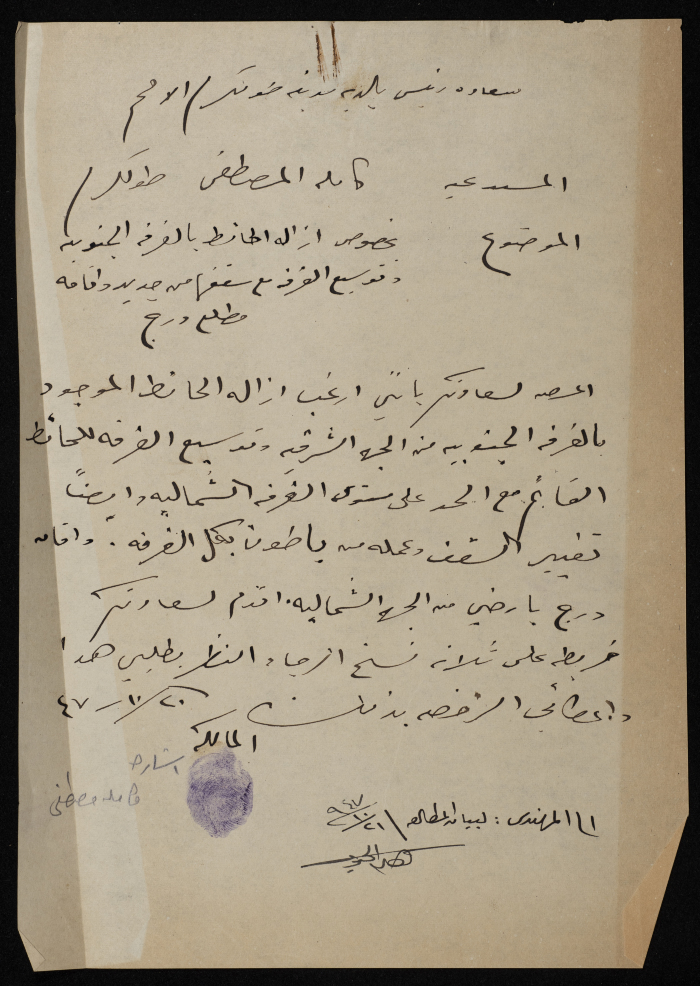 سعادة رئيس بلدية مدينة طولكرم الافخم
المستدعيه كامله المصطفى طولكرم
الموضوع بخصوص ازاله الحائط بالغرفه الجنوبيه
وتوسيع الغرفه مع سقفها من جديد واقامه
مطلع درج
اعرض لسعادتكم بانني ارغب ازاله الحائط الموجود
بالغرفه الجنوبيه من الجهه الشرقيه وتوسيع الغرفه للحائط
القائم مع الحد على مستوى الغرفه الشماليه وايضاً
تغيير السقف وعمله من باطون بكل الغرفه. واقامه
درج بارضي من الجهه الشماليه. اقدم لسعادتكم
خريطه على ثلاثه نسخ ارجاء النظر بطلبي هذا
واعطائي الرخصه بذلك ٢٠/١٠/٤٧
المالكه
اشارة
كامله مصطفى
الى المهندس: لبيان المطالعه ٢١/١٠/٩٤٧